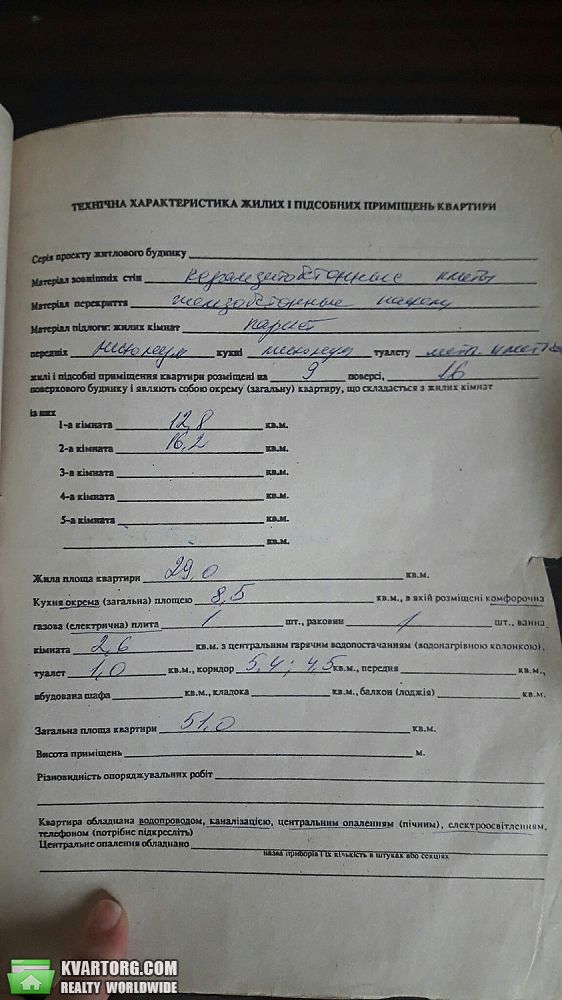 ТЕХНІЧНА ХАРАКТЕРИСТИКА ЖИЛИХ І ПІДСОБНИХ ПРИМІЩЕНЬ КВАРТИРИ
Серія проєкту житлового будинку
Матеріал зовнішніх стін керамзитобетонные плиты
Матеріал перекриття железобетонные
Матеріал підлоги: жилих кімнат паркет
передніх линолеум кухні линолеум туалету мет. плитка
жилі і підсобні приміщення квартири розміщені на 9 поверсі, 16
поверхового будинку і являють собою окрему (загальну) квартиру, що складається з жилих кімнат
із них
1-а кімната 12,8 кв.м.
2-а кімната 16,2 кв.м.
3-а кімната кв.м.
4-а кімната кв.м.
5-а кімната кв.м.
кв.м.
Жила площа квартири 29,0 кв.м.
Кухня окрема (загальна) площею 8,5 кв.м., в якій розміщені комфорочна
газова (електрична) плита 1 шт., раковин 1 шт., ванна
кімната 2,6 кв.м. з центральним гарячим водопостачанням (водонагрівною колонкою),
туалет 1,0 кв.м., коридор 5,4; 4,5 кв.м., передня кв.м.,
вбудована шафа кв.м., кладока кв.м., балкон (лоджія) кв.м.
Загальна площа квартири 51,0 кв.м.
Висота приміщень м.
Різновидність опоряджувальних робіт
Квартира обладнана водопроводом, каналізацією, центральним опаленням (пічним), електроосвітленням,
телефоном (потрібне підкресліть)
Центральне опалення обладнано
назва приборів і їх кількість в штуках або секціях
KVARTORG.COM
REALTY WORLDWIDE